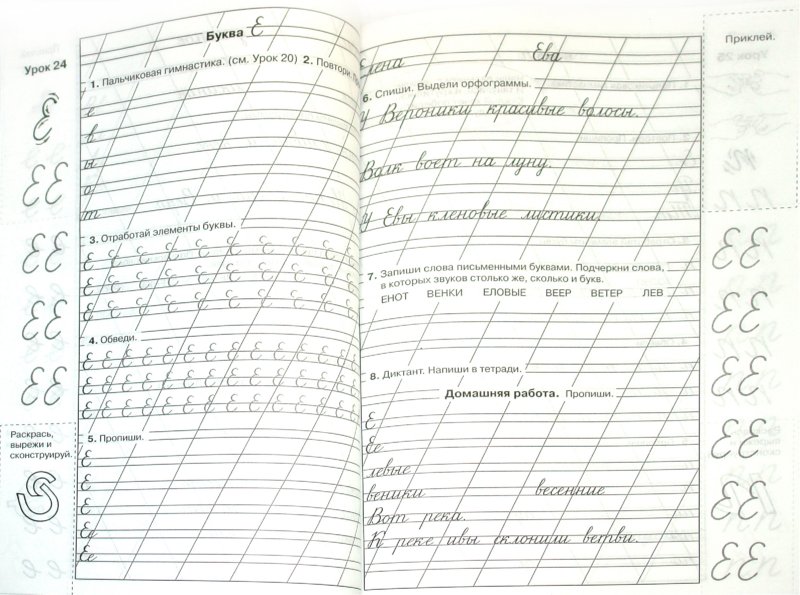 Буква Е
Урок 24
1. Пальчиковая гимнастика. (см. Урок 20) 2. Повтори.
е
в
ы
о
т
3. Отработай элементы буквы.
4. Обведи.
Е Е Е Е Е Е Е Е Е Е Е Е Е
Е Е Е Е Е Е Е Е Е Е Е Е Е
Е Е Е Е Е Е Е Е Е Е Е Е Е
5. Пропиши.
Е
Е
Е
Ее
Раскрась,
вырежи и
сконструируй.
Приклей.
Елена Ева
6. Спиши. Выдели орфограммы.
У Вероники красивые волосы.
Волк воет на луну.
У Евы кленовые листики.
7. Запиши слова письменными буквами. Подчеркни слова,
в которых звуков столько же, сколько и букв.
ЕНОТ ВЕНКИ ЕЛОВЫЕ ВЕЕР ВЕТЕР ЛЕВ
8. Диктант. Напиши в тетради.
Домашняя работа. Пропиши.
Е
Ее
левые
веники весенние
Вот река.
К реке ивы склонили ветви.